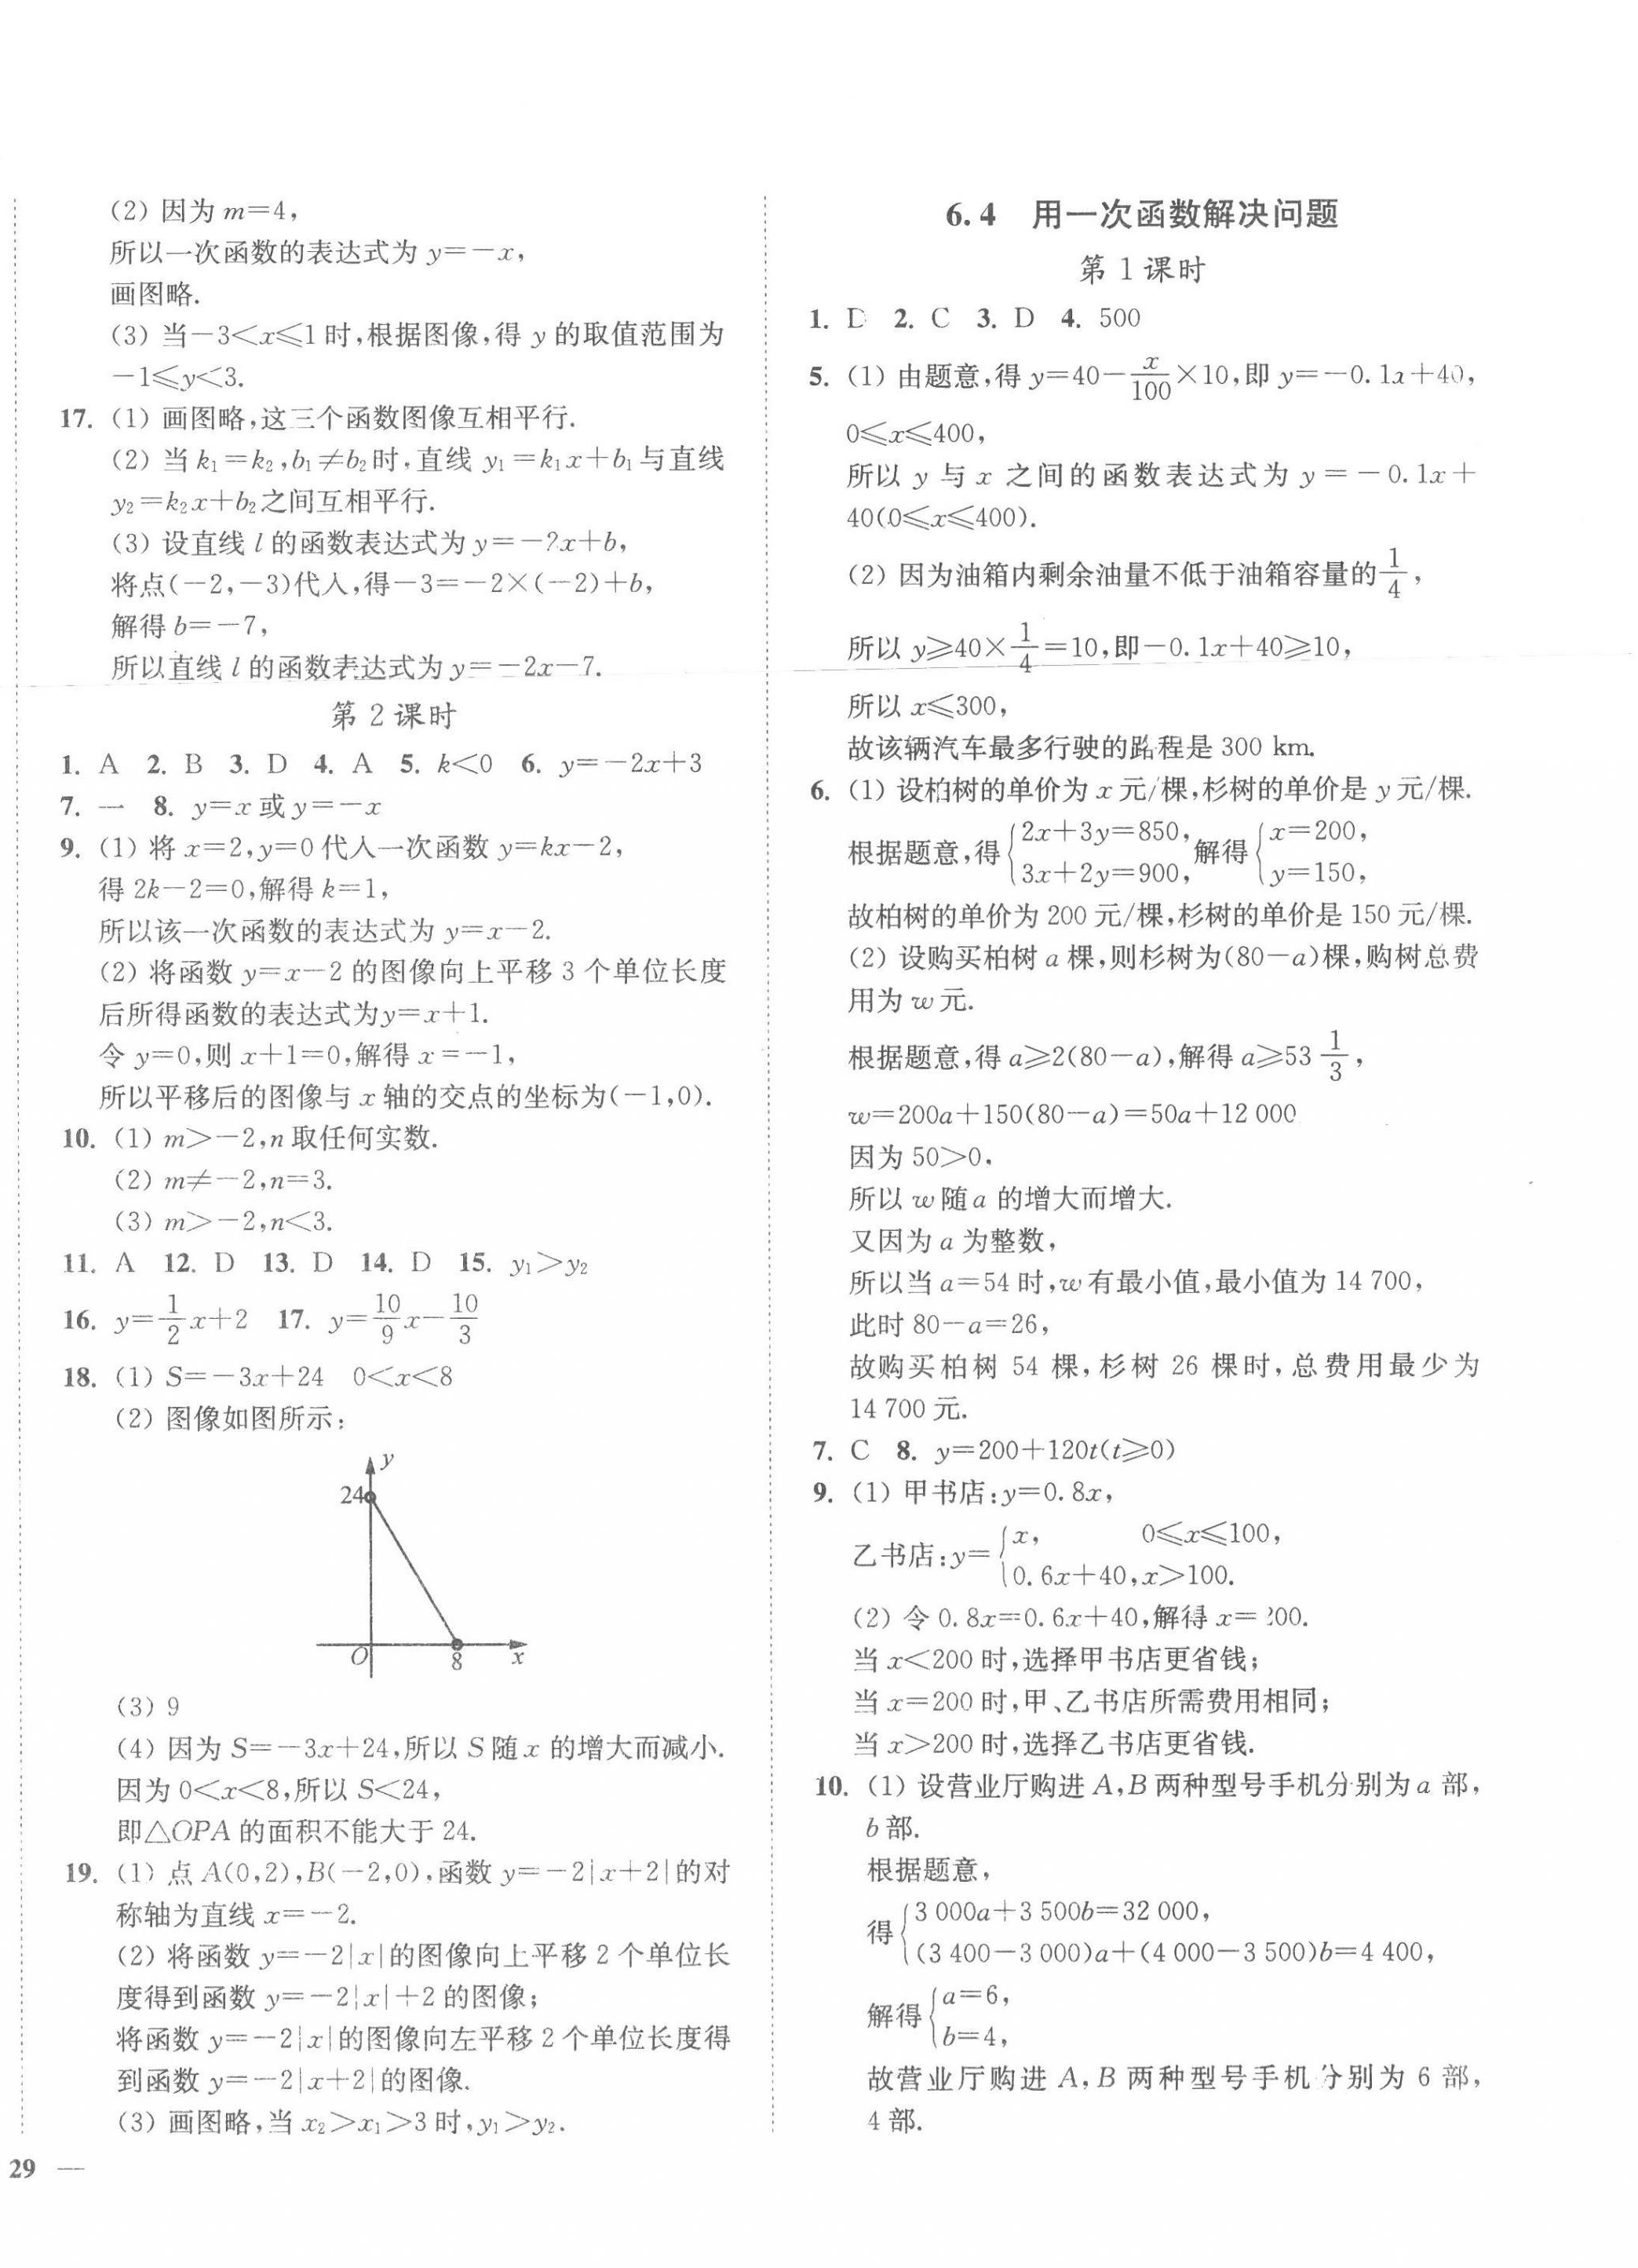 (2) 因为 m=4,
所以一次函数的表达式为 y=-x,
画图略.
(3) 当-3<x≤1时,根据图像,得 y 的取值范围为
-1≤y<3.
17. (1) 画图略,这三个函数图像互相平行.
(2) 当 k₁=k₂,b₁≠b₂时,直线 y₁=k₁x+b₁与直线
y₂=k₂x+b₂之间互相平行.
(3) 设直线 l 的函数表达式为 y=-2x+b,
将点(-2,-3)代入,得-3=-2×(-2)+b,
解得 b=-7,
所以直线 l 的函数表达式为 y=-2x-7.
第 2 课时
1. A 2. B 3. D 4. A 5. k<0 6. y=-2x+3
7. 一 8. y=x 或 y=-x
9. (1) 将 x=2,y=0 代入一次函数 y=kx-2,
得 2k-2=0,解得 k=1,
所以该一次函数的表达式为 y=x-2.
(2) 将函数 y=x-2 的图像向上平移 3 个单位长度
后所得函数的表达式为y=x+1.
令 y=0,则 x+1=0,解得 x=-1,
所以平移后的图像与 x 轴的交点的坐标为(-1,0).
10. (1) m>-2,n 取任何实数.
(2) m≠-2,n=3.
(3) m>-2,n<3.
11. A 12. D 13. D 14. D 15. y₁>y₂
16. y=1/2x+2 17. y=10/9x-10/3
18. (1) S=-3x+24 0<x<8
(2) 图像如图所示:
y
24
O
8
x
(3) 9
(4) 因为 S=-3x+24,所以 S 随 x 的增大而减小.
因为 0<x<8,所以 S<24,
即△OPA 的面积不能大于 24.
19. (1) 点 A(0,2),B(-2,0),函数 y=-2|x+2|的对
称轴为直线 x=-2.
(2) 将函数 y=-2|x|的图像向上平移 2 个单位长
度得到函数 y=-2|x|+2 的图像;
将函数 y=-2|x|的图像向左平移 2 个单位长度得
到函数 y=-2|x+2|的图像.
(3) 画图略,当 x₂>x₁>3 时,y₁>y₂.
29 —
6.4 用一次函数解决问题
第 1 课时
1. D 2. C 3. D 4. 500
5. (1) 由题意,得 y=40-x/100×10,即 y=-0.1x+40,
0≤x≤400,
所以 y 与 x 之间的函数表达式为 y=-0.1x+
40(0≤x≤400).
(2) 因为油箱内剩余油量不低于油箱容量的1/4,
所以 y≥40×1/4=10,即-0.1x+40≥10,
所以 x≤300,
故该辆汽车最多行驶的路程是 300 km.
6. (1) 设柏树的单价为 x 元/棵,杉树的单价是 y 元/棵.
根据题意,得{2x+3y=850, 3x+2y=900, 解得{x=200, y=150,
故柏树的单价为 200 元/棵,杉树的单价是 150 元/棵.
(2) 设购买柏树 a 棵,则杉树为(80-a)棵,购树总费
用为 w 元.
根据题意,得 a≥2(80-a),解得 a≥53 1/3,
w=200a+150(80-a)=50a+12 000
因为 50>0,
所以 w 随 a 的增大而增大.
又因为 a 为整数,
所以当 a=54 时,w 有最小值,最小值为 14 700,
此时 80-a=26,
故购买柏树 54 棵,杉树 26 棵时,总费用最少为
14 700 元.
7. C 8. y=200+120t(t≥0)
9. (1) 甲书店:y=0.8x,
乙书店:y={x, 0≤x≤100, 0.6x+40,x>100.
(2) 令 0.8x=0.6x+40,解得 x=200.
当 x<200 时,选择甲书店更省钱;
当 x=200 时,甲、乙书店所需费用相同;
当 x>200 时,选择乙书店更省钱.
10. (1) 设营业厅购进 A,B 两种型号手机分别为 a 部,
b 部.
根据题意,
得{3 000a+3 500b=32 000, (3 400-3 000)a+(4 000-3 500)b=4 400,
解得{a=6, b=4,
故营业厅购进 A,B 两种型号手机分别为 6 部,
4 部.